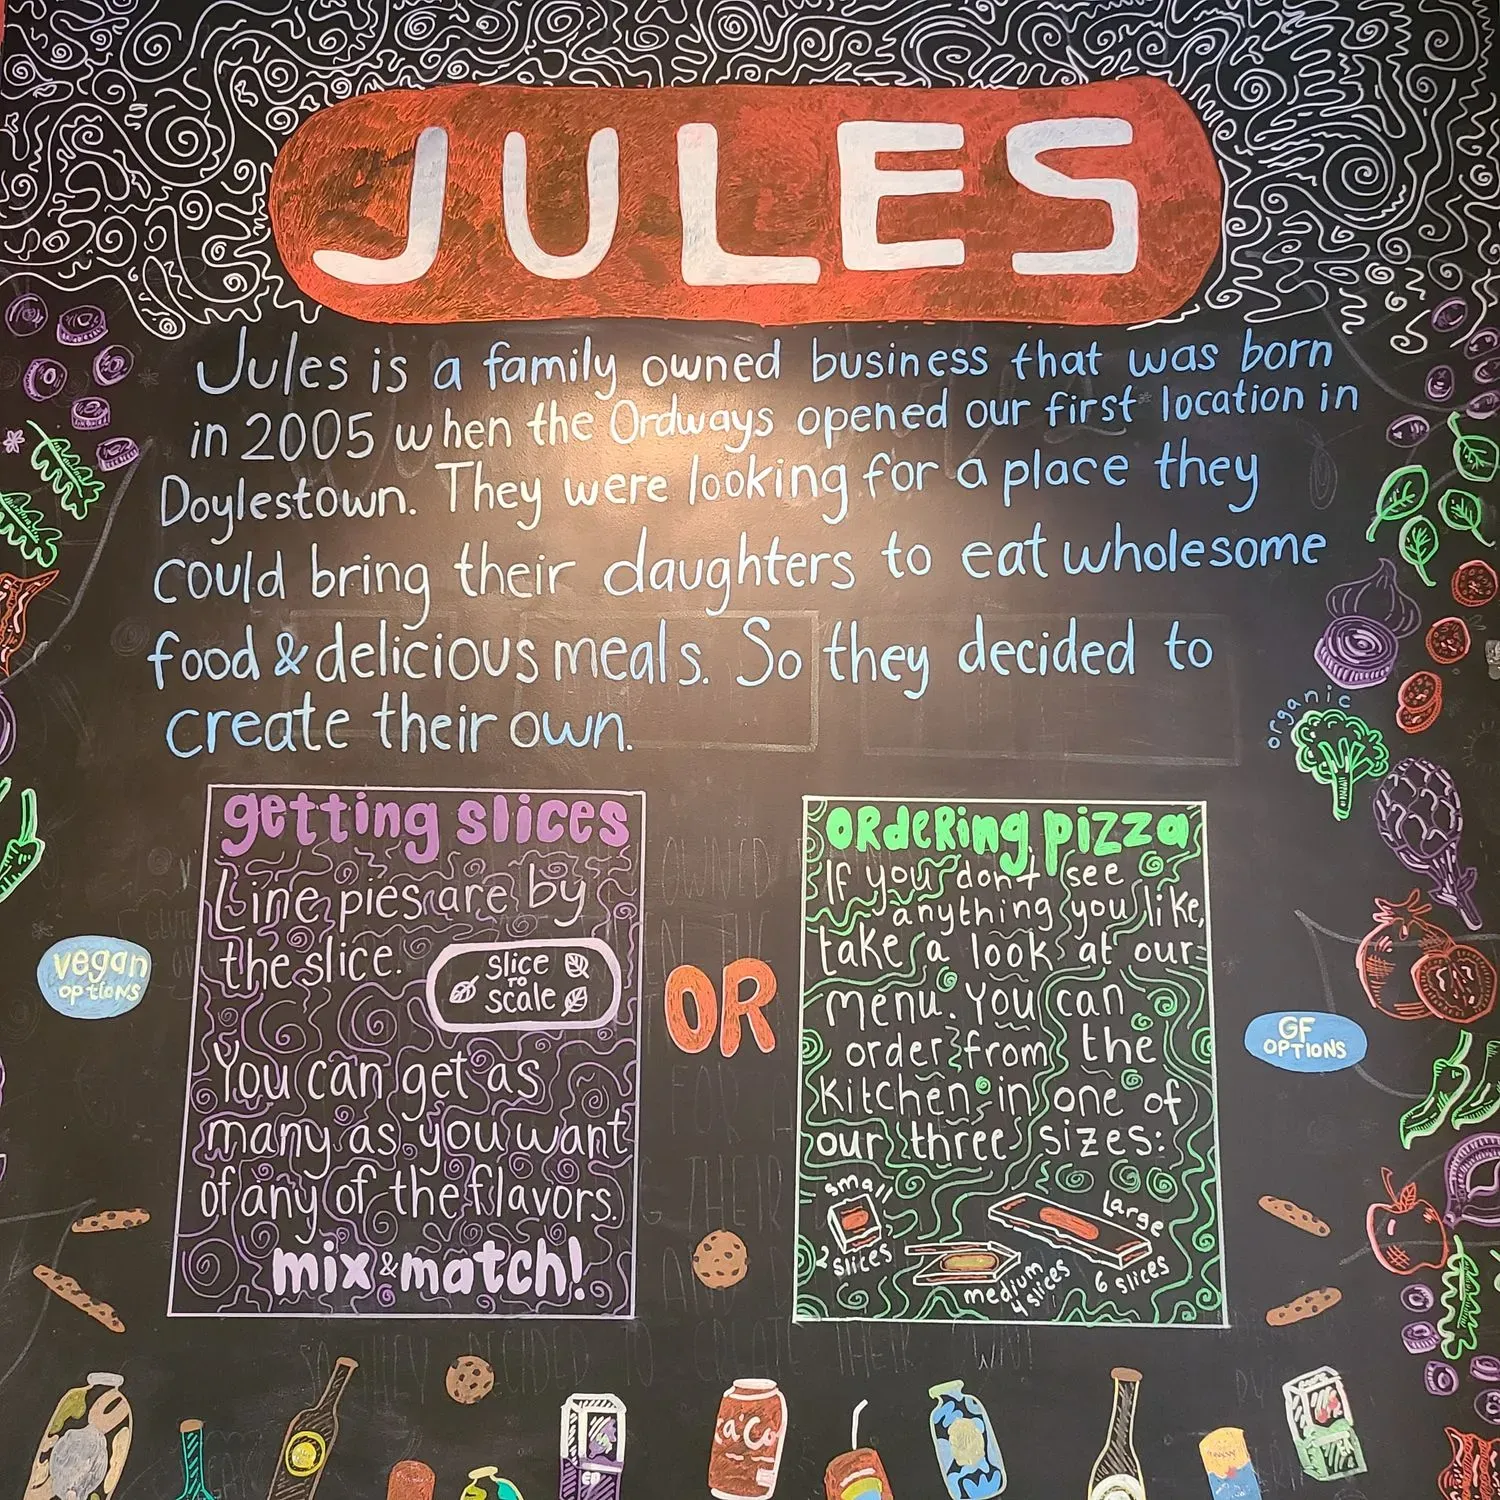 JULES
Jules is a family owned business that was born
in 2005 when the Ordways opened our first location in
Doylestown. They were looking for a place they
could bring their daughters to eat wholesome
food & delicious meals. So they decided to
create their own.
organic
getting slices
Line pies are by
the slice.
slice
TO
scale
You can get as
many as you want
of any of the flavors.
mix & match!
vegan
options
OR
ORdeRing pizza
If you don't see
anything you like,
take a look at our
menu. You can
order from the
kitchen in one of
our three sizes:
small
2 slices
medium
4 slices
Large
6 slices
GF
OPTIONS